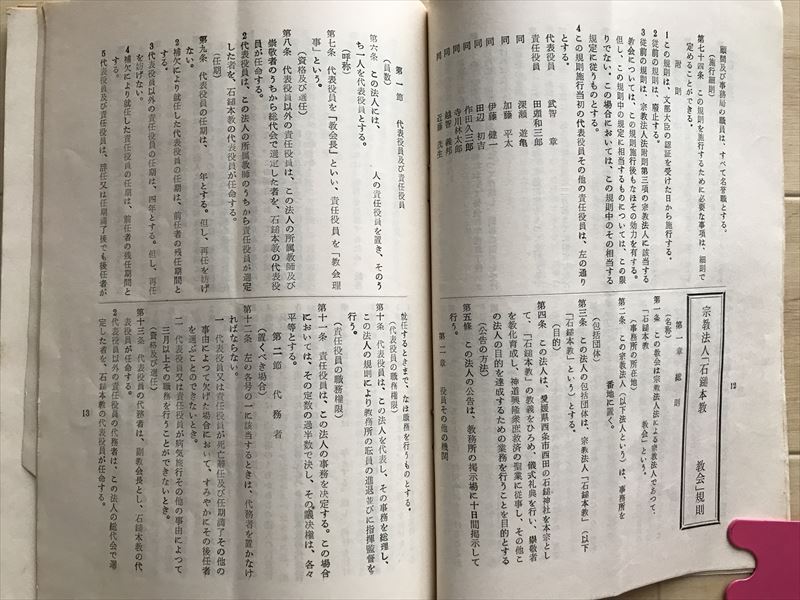 顧問及び事務局の職員は、すべて名誉職とする。
（施行細則）
第七十四条　この規則を施行するために必要な事項は、細則で
定めることができる。
附　則
1 この規則は、文部大臣の認証を受けた日から施行する。
2 従前の規則は、廃止する。
3 従前の規則は、宗教法人法附則第三項の宗教法人に該当する
教会については、この規則施行後もなほその効力を有する。
但し、この規則中の規定に相当するものについては、この限
りでない。この場合においては、この規則中のその相当する
規定に従うものとする。
4 この規則施行当初の代表役員その他の責任役員は、左の通り
とする。
代表役員　武智　章
責任役員　田頭和三郎
同　深瀬　遊亀
同　加藤　平太
同　伊藤　健一
同　田辺　初吉
同　作田久三郎
同　寺川林太郎
同　越智　義邦
同　近藤　茂生
12
宗教法人「石鎚本教　　　教会」規則
第一章　総　則
（名称）
第一条　この教会は宗教法人法による宗教法人であつて、
「石鎚本教　　　教会」という。
（事務所の所在地）
第二条　この宗教法人（以下法人という）は、事務所を
番地に置く。
（包括団体）
第三条　この法人の包括団体は、宗教法人「石鎚本教」（以下
「石鎚本教」という）とする。
（目的）
第四条　この法人は、愛媛県西条市西田の石鎚神社を本宗とし
て、「石鎚本教」の教義をひろめ、儀式礼典を行い、崇敬者
を教化育成し、神道興隆衆庶救済の聖業に従事し、その他こ
の法人の目的を達成するための業務を行うことを目的とする
（公告の方法）
第五条　この法人の公告は、教務所の掲示場に十日間掲示して
行う。
第二章　役員その他の機関
第一節　代表役員及び責任役員
（員数）
第六条　この法人には、　　人の責任役員を置き、そのう
ち一人を代表役員とする。
（呼称）
第七条　代表役員を「教会長」といい、責任役員を「教会理
事」という。
（資格及び選任）
第八条　代表役員以外の責任役員は、この法人の所属教師及び
崇敬者のうちから総代会で選定した者を、石鎚本教の代表役
員が任命する。
2 代表役員は、この法人の所属教師のうちから責任役員が選定
した者を、石鎚本教の代表役員が任命する。
（任期）
第九条　代表役員の任期は、　年とする。但し、再任を妨げ
ない。
2 補欠により就任した代表役員の任期は、前任者の残任期間と
する。
3 代表役員以外の責任役員の任期は、四年とする。但し、再任
を妨げない。
4 補欠により就任した責任役員の任期は、前任者の残任期間と
する。
5 代表役員及び責任役員は、辞任又は任期満了後でも後任者が
就任するときまで、なほ職務を行うものとする。
（代表役員の職務権限）
第十条　代表役員は、この法人を代表し、その事務を総理し、
この法人の規則により教務所の職員の進退並びに指揮監督を
行う。
（責任役員の職務権限）
第十一条　責任役員は、この法人の事務を決定する。この場合
においては、その定数の過半数で決し、その議決権は、各々
平等とする。
第二節　代務者
（置くべき場合）
第十二条　左の各号の一に該当するときは、代務者を置かなけ
ればならない。
一　代表役員又は責任役員が死亡辞任及び任期満了その他の
事由によつて欠けた場合において、すみやかにその後任者
を選ぶことのできないとき。
二　代表役員又は責任役員が病気旅行その他の事由によつて
三月以上その職務を行うことができないとき。
（資格及び選任）
第十三条　代表役員の代務者は、副教会長とし、石鎚本教の代
表役員が任命する。
2 代表役員以外の責任役員の代務者は、この法人の総代会で選
定した者を、石鎚本教の代表役員が任命する。
13